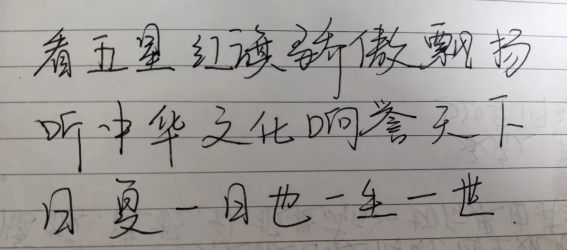 看五星红旗骄傲飘扬
听中华文化响誉天下
日夏一日也一生一世